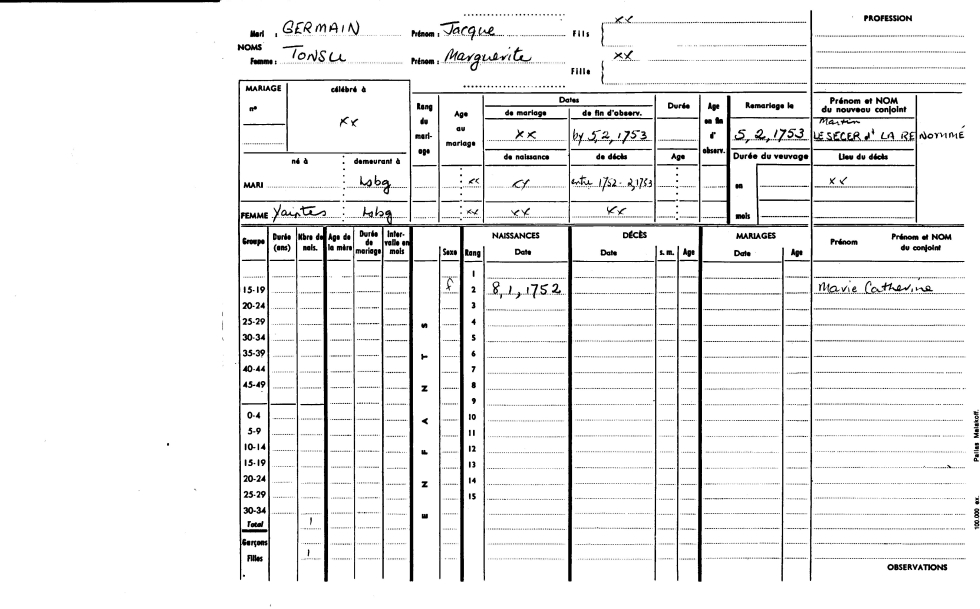 Mari : GERMAIN Prénom : Jacque Fils { xx PROFESSION
NOMS
Femme : TONSU Prénom : Marguerite Fille { xx
MARIAGE célébré à
n° xx
Rang du mari-age Age au mariage Dates Durée Age en fin d' observ. Remariage le Prénom et NOM du nouveau conjoint
de mariage de fin d'observ.
xx by 5,2,1753 5, 2, 1753 Martin LESECER d' LA RENOMMÉ
né à demeurant à de naissance de décès Age Durée du veuvage Lieu du décès
MARI Lsbg xx xx entre 1752-2,1753 en xx
FEMME Yaintes Lsbg xx xx xx mois
Groupe Durée (ans) Nbre de nais. Age de la mère Durée de mariage Inter-valle en mois Sexe Rang NAISSANCES Date DÉCÈS Date s. m. Age MARIAGES Date Age Prénom Prénom et NOM du conjoint
ENFANTS
1
15-19 f 2 8, 1, 1752 Marie Catherine
20-24 3
25-29 4
30-34 5
35-39 6
40-44 7
45-49 8
9
0-4 10
5-9 11
10-14 12
15-19 13
20-24 14
25-29 15
30-34
Total 1
Garçons
Filles 1
OBSERVATIONS
100.000 ex. Parlas Malakoff.